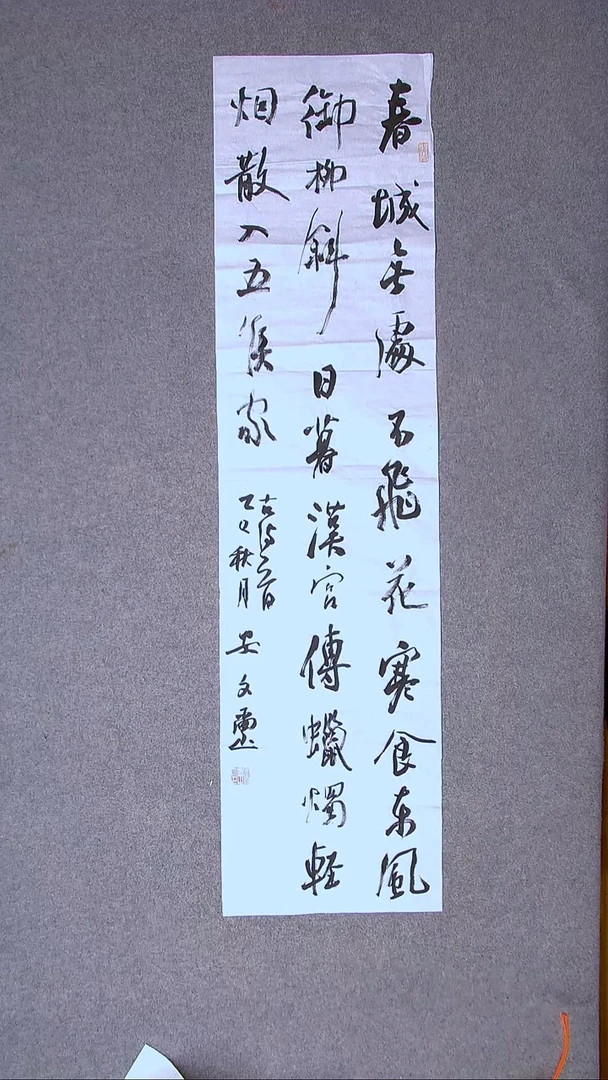 春城無處不飛花寒食东風
御柳斜日暮漢宮傳蠟燭軽
烟散入五侯家
古诗一首
乙巳秋月 安文